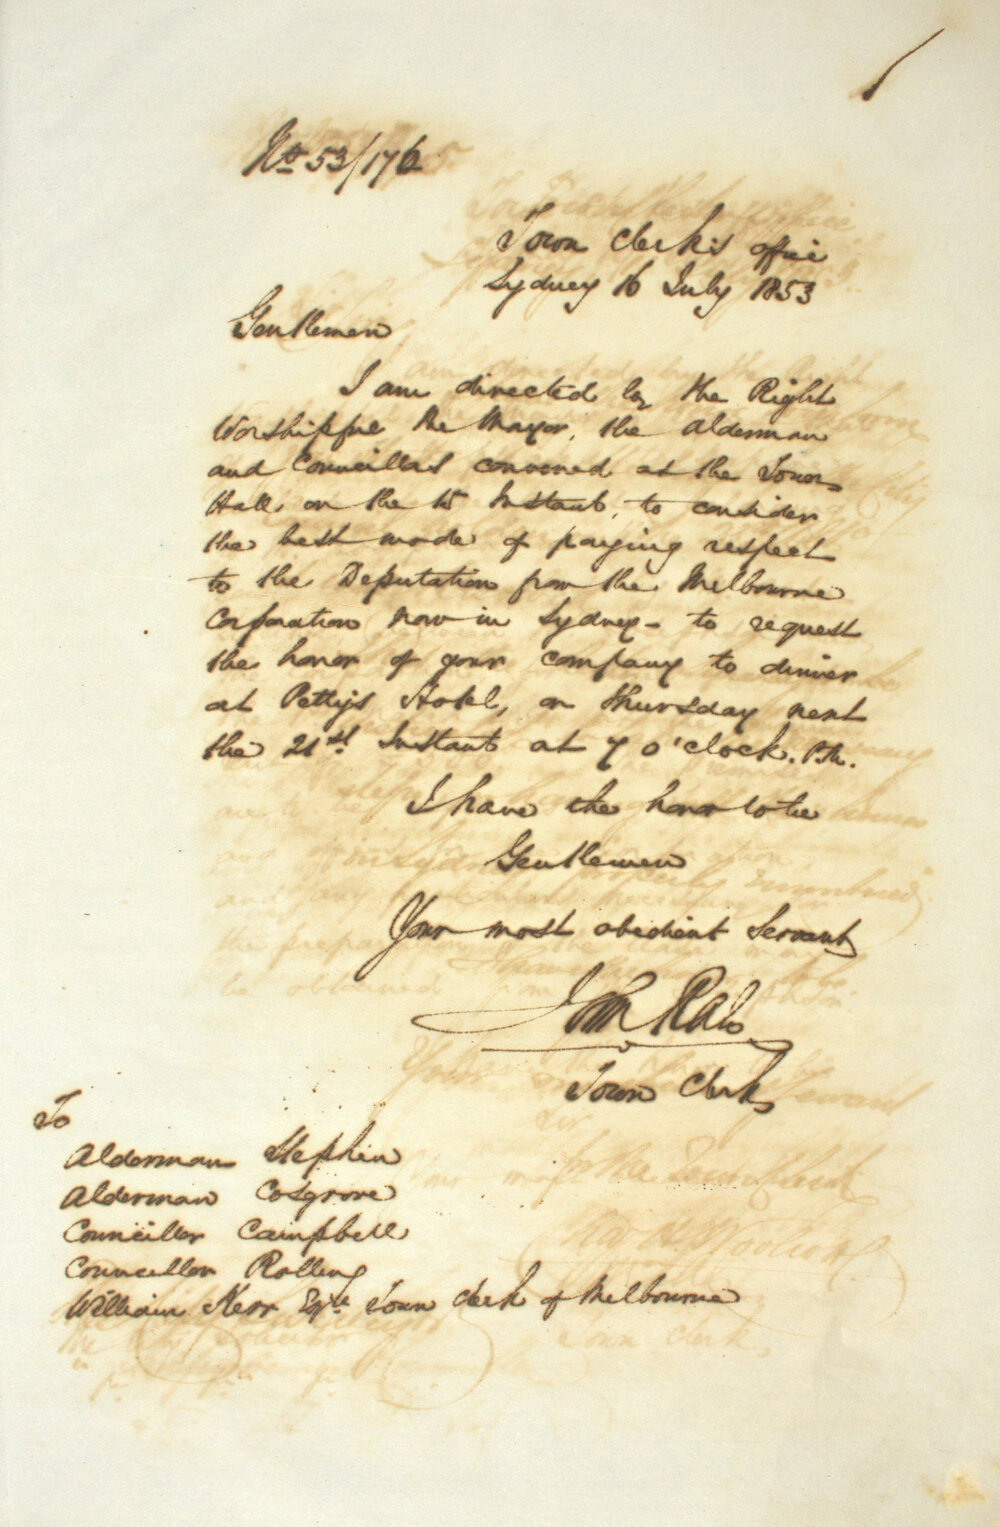 No 53/176
Town Clerk's Office
Sydney 16 July 1853
Gentlemen
I am directed by the Right
Worshipful the Mayor, the Alderman
and Councillors convened at the Town
Hall, on the 15 Instant, to consider
the best mode of paying respect
to the Deputation from the Melbourne
Corporation now in Sydney - to request
the honor of your company to dinner
at Petty's Hotel, on Thursday next
the 21st Instant at 7 o'clock. P.M.
I have the honor to be
Gentlemen
Your most obedient Servant
John Rae
Town Clerk
To
Alderman Stephen
Alderman Cosgrove
Councillor Campbell
Councillor Rolling
William Kerr Esqre Town Clerk of Melbourne